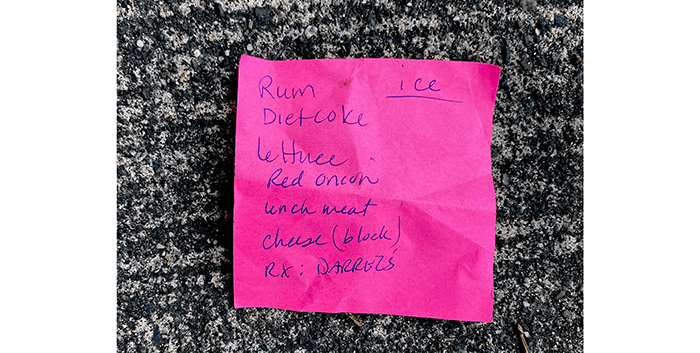 Rum ice
Diet coke
lettuce
Red onion
lunch meat
cheese (block)
RX: DARREL'S